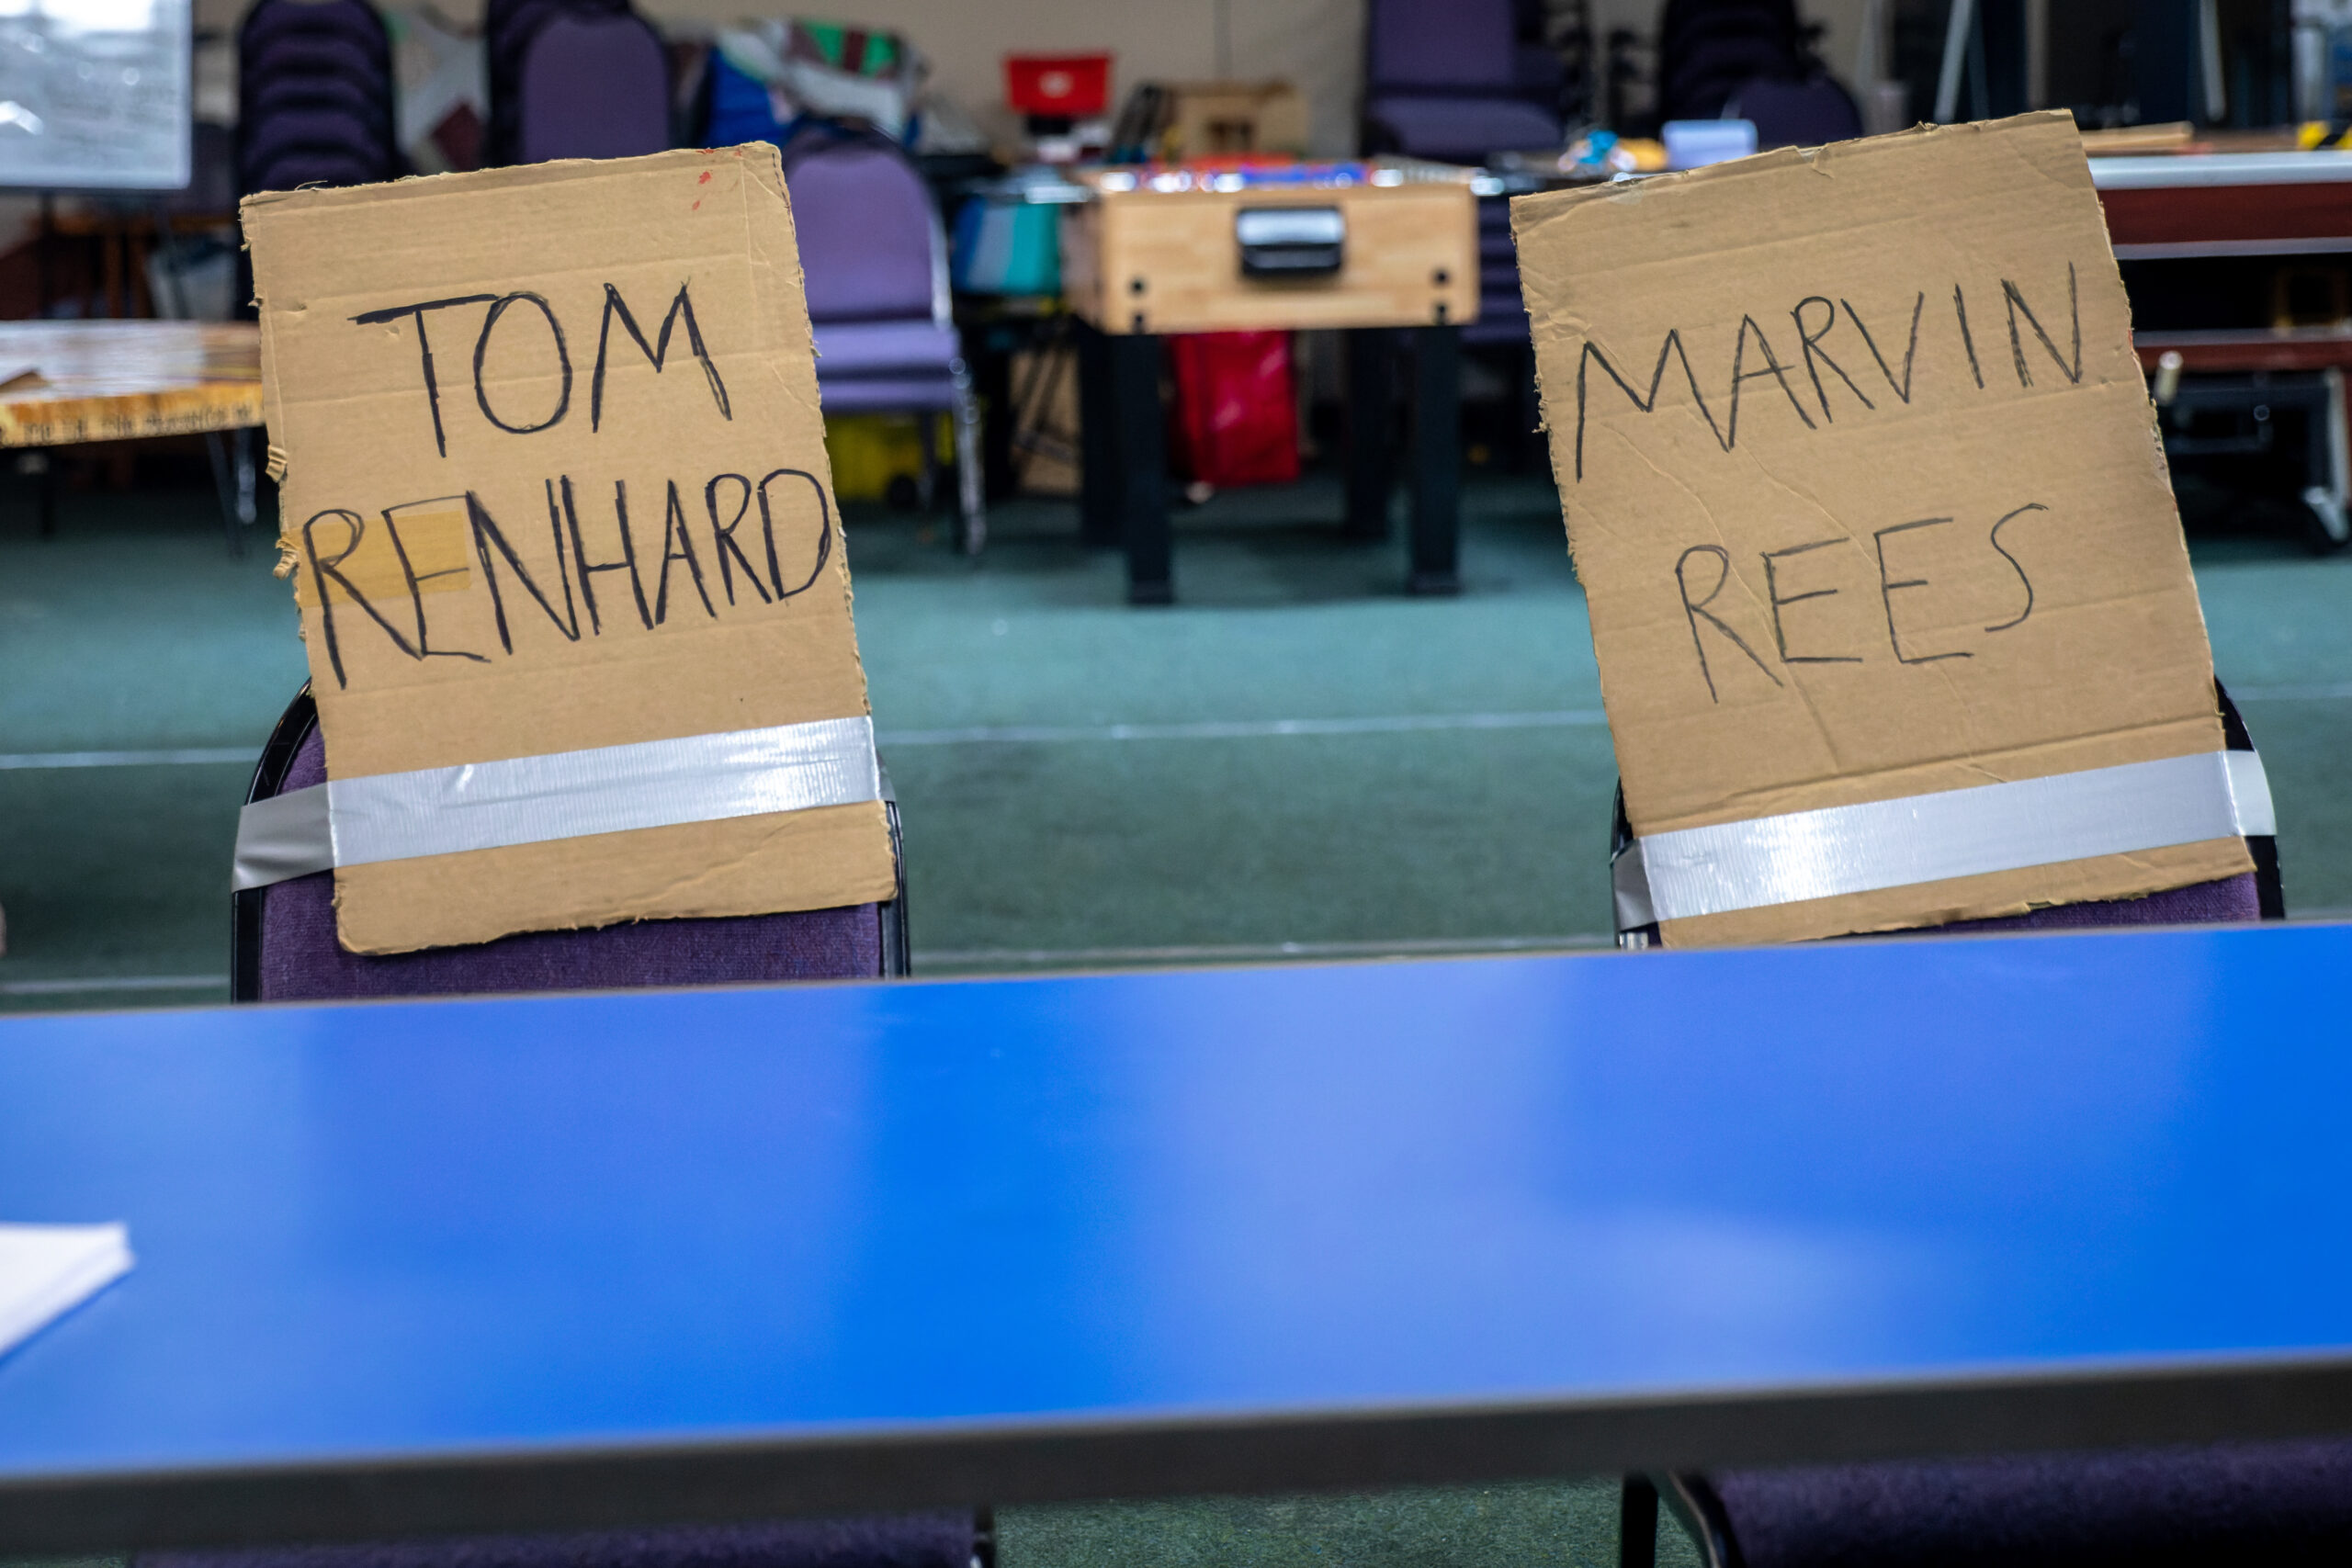 TOM
RENHARD
MARVIN
REES